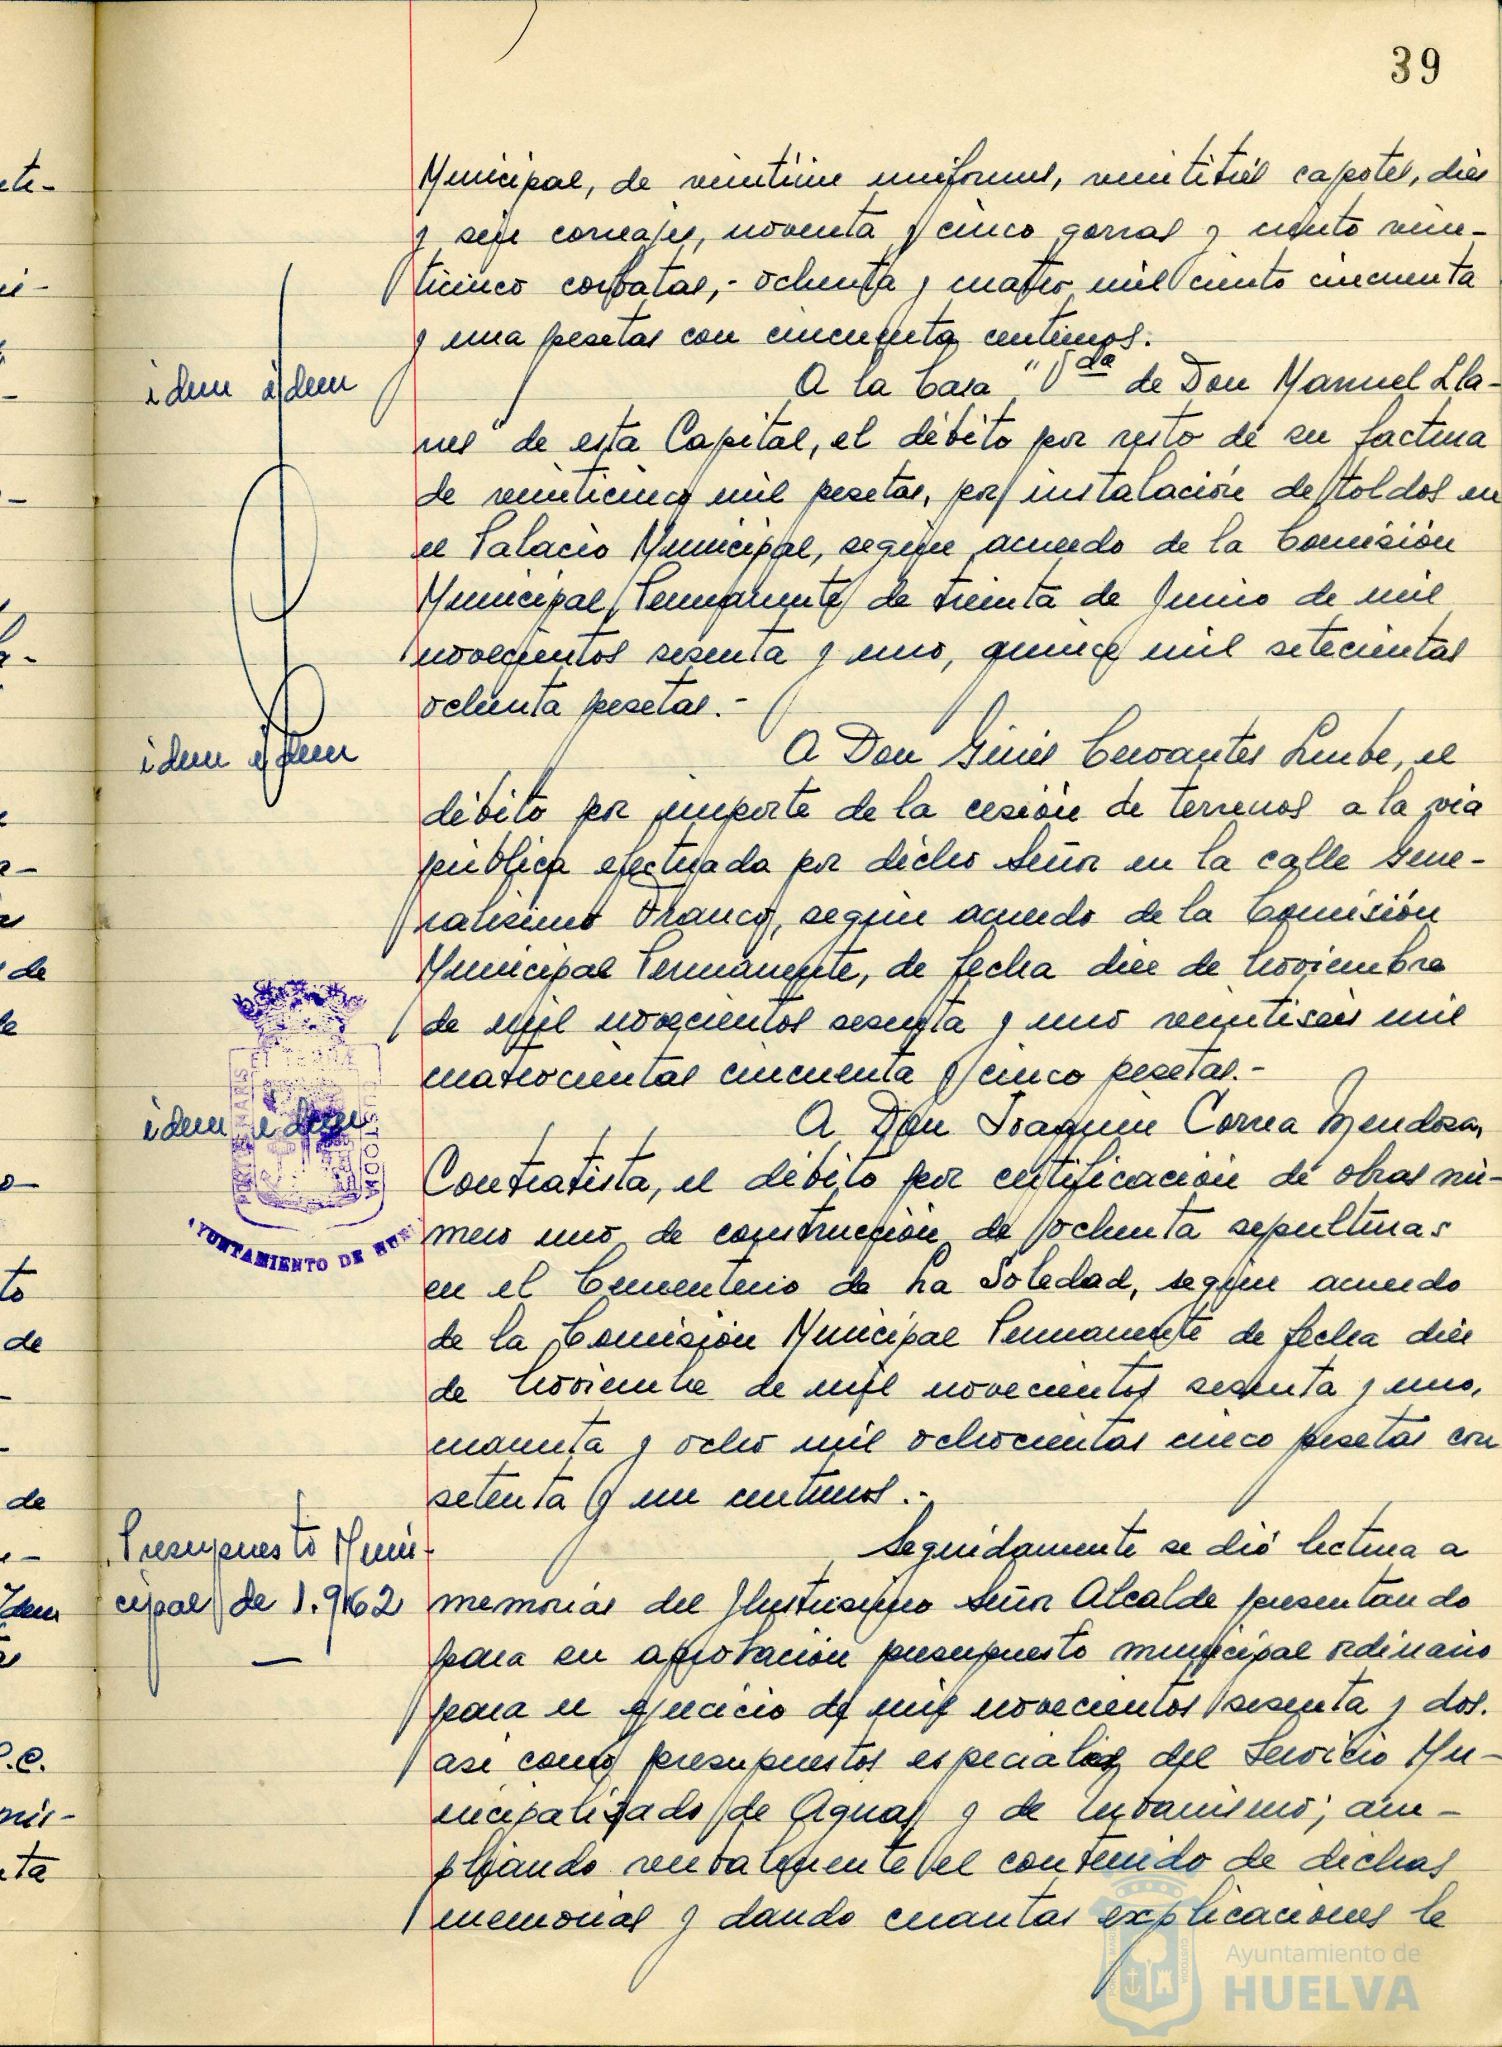 39
Municipal, de veintiún uniformes, veintitrés capotes, diez
y seis correajes, noventa y cinco gorras y ciento vein-
ticinco corbatas,- ochenta y cuatro mil ciento cincuenta
y una pesetas con cincuenta centimos.
idem idem
A la Casa "Vda de Don Manuel Lla-
nes" de esta Capital, el débito por resto de su factura
de veinticinco mil pesetas, por instalación de toldos en
el Palacio Municipal, según acuerdo de la Comisión
Municipal Permanente de treinta de Junio de mil
novecientos sesenta y uno, quince mil setecientas
ochenta pesetas.-
idem idem
A Don Ginés Cervantes, el
débito por importe de la cesión de terrenos a la vía
pública efectuada por dicho Señor en la calle Gene-
ralísimo Franco, según acuerdo de la Comisión
Municipal Permanente, de fecha diez de Noviembre
de mil novecientos sesenta y uno veintiseis mil
cuatrocientas cincuenta y cinco pesetas.-
idem idem
A Don Joaquín Correa Mendoza,
Contratista, el débito por certificación de obras nú-
mero uno de construcción de ochenta sepulturas
en el Cementerio de La Soledad, según acuerdo
de la Comisión Municipal Permanente de fecha diez
de Noviembre de mil novecientos sesenta y uno,
cuarenta y ocho mil ochocientas cinco pesetas con
setenta y un centimos.-
Presupuesto Muni-
cipal de 1.962
Seguidamente se dió lectura a
memorias del Ilustrísimo Señor Alcalde presentando
para su aprobación presupuesto municipal ordinario
para el ejercicio de mil novecientos sesenta y dos.
así como presupuestos especiales del Servicio Mu-
nicipalizado de Aguas y de Urbanismo; am-
pliando verbalmente el contenido de dichas
memorias y dando cuantas explicaciones le
AYUNTAMIENTO DE HUELVA
PORTUS MARIS
ET TERRAE
CUSTODIA
Ayuntamiento de
HUELVA